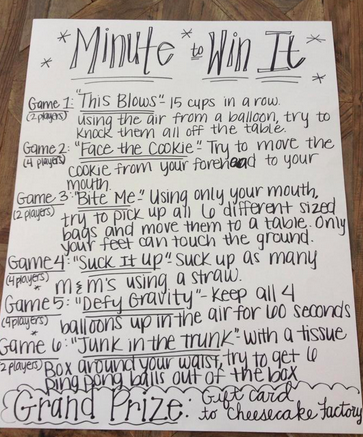 * Minute to Win It *
Game 1: "This Blows" - 15 cups in a row.
(2 players) using the air from a balloon, try to
knock them all off the table.
Game 2: "Face the Cookie" - Try to move the
(4 players) cookie from your forehead to your
mouth.
Game 3: "Bite Me" - Using only your mouth,
(2 players) try to pick up all 6 different sized
bags and move them to a table. Only
your feet can touch the ground.
Game 4: "Suck It Up" - Suck up as many
(4 players) m & m's using a straw.
Game 5: "Defy Gravity" - keep all 4
(4 players) balloons up in the air for 60 seconds
Game 6: "Junk in the trunk" - with a tissue
(2 players) Box around your waist, try to get 6
Ping pong balls out of the box
Grand Prize: Gift card
to Cheesecake Factory